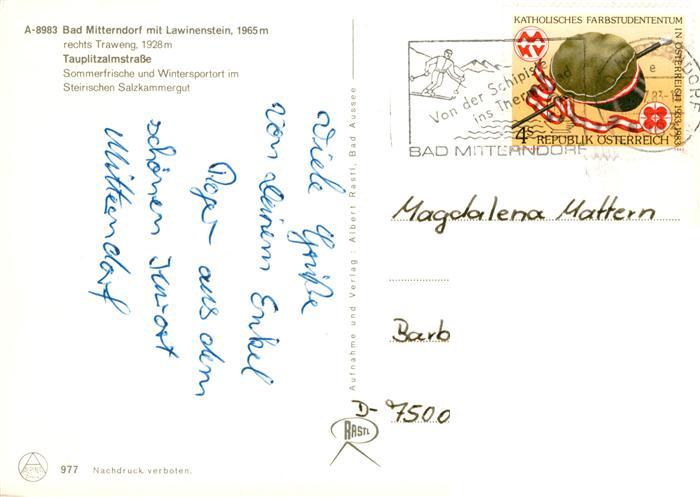 A-8983 Bad Mitterndorf mit Lawinenstein, 1965 m
rechts Traweng, 1928 m
Tauplitzalmstraße
Sommerfrische und Wintersportort im
Steirischen Salzkammergut
Viele Grüße
von deinem Enkel
Roger aus dem
schönen Kurort
Mitterndorf
977 Nachdruck verboten.
Aufnahme und Verlag: Albert Rastl, Bad Aussee
RASTL
KATHOLISCHES FARBSTUDENTENTUM
IN ÖSTERREICH 1933-1983
4S REPUBLIK ÖSTERREICH
Von der Schipiste
ins Thermalbad
BAD MITTERNDORF
Magdalena Mattern
Barb
A-7500